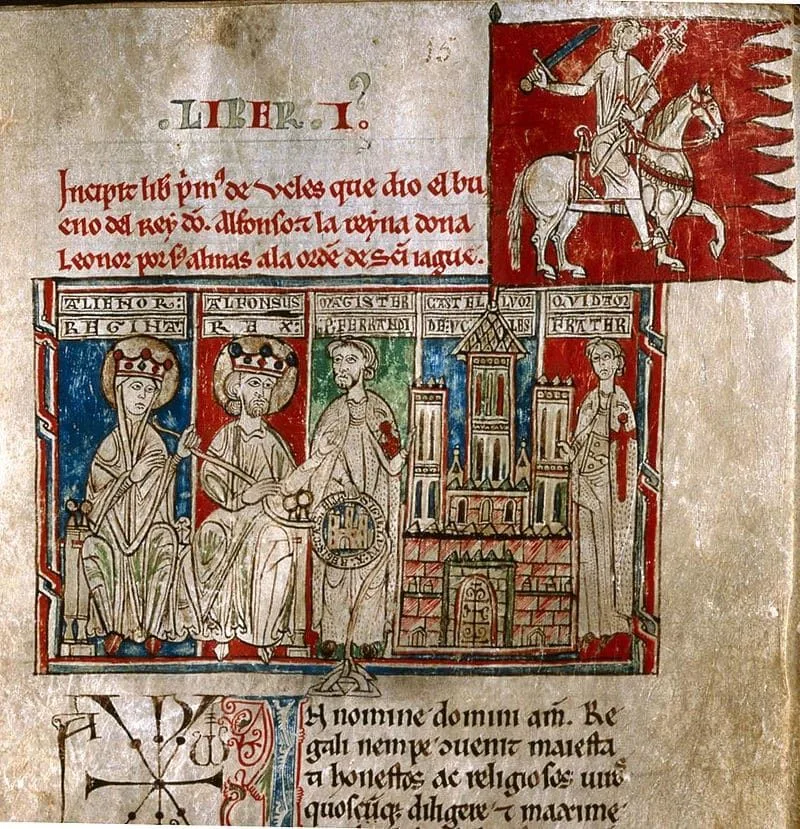 15
.LIBER.I.
Incipit lib p̃mꝰ de Vcles que dio el bu
eno del Rey dõ. Alfonso ⁊ la reyna dona
Leonor por sꝰ almas a la ordẽ de Scĩ iague.
ALIENOR:
REGINA:
ALFONSUS
REX:
MAGISTER
P. FERRANDI
CASTELLVM
DE VCLES
QVIDAM
FRATER
SIGILLVM
A W
IN nomine domini am̃. Re
gali nempe ↄuenit maiesta
ti honestos ac religiosos uiros
quoscũq; diligere ⁊ maxime